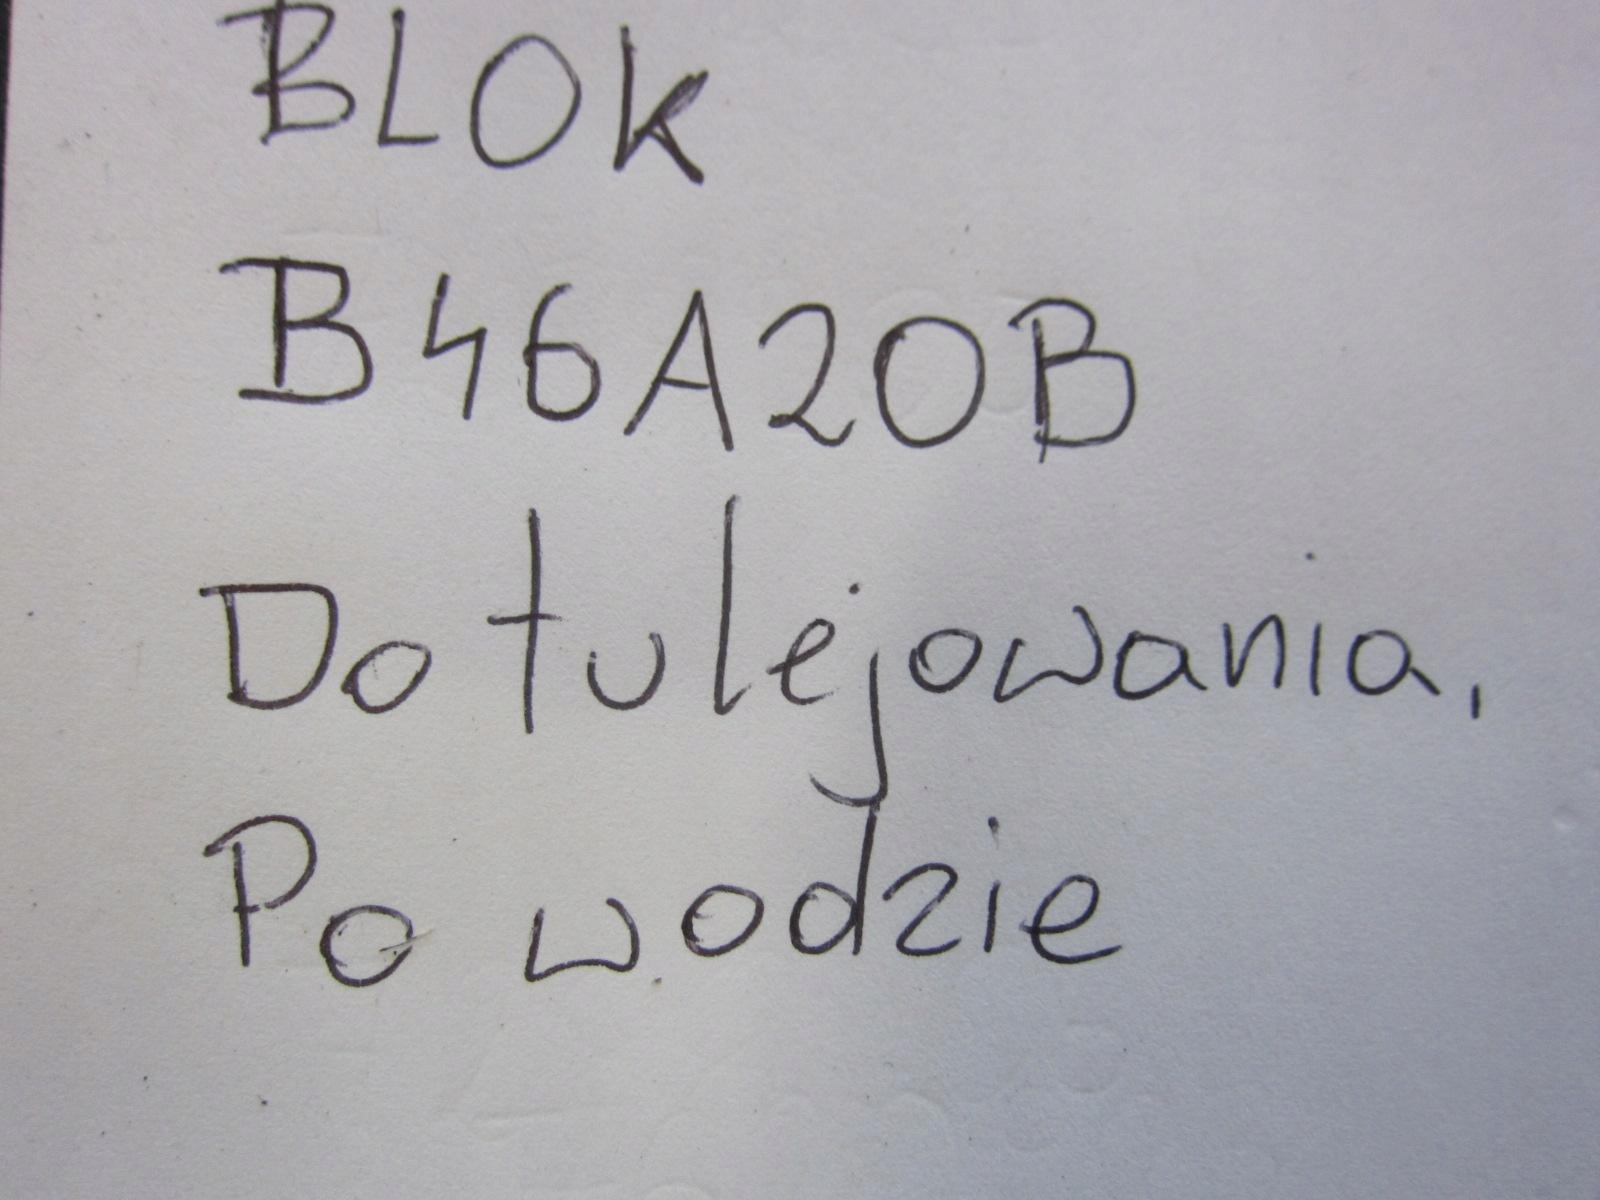 BLOK
B46A20B
Do tulejowania,
Po wodzie